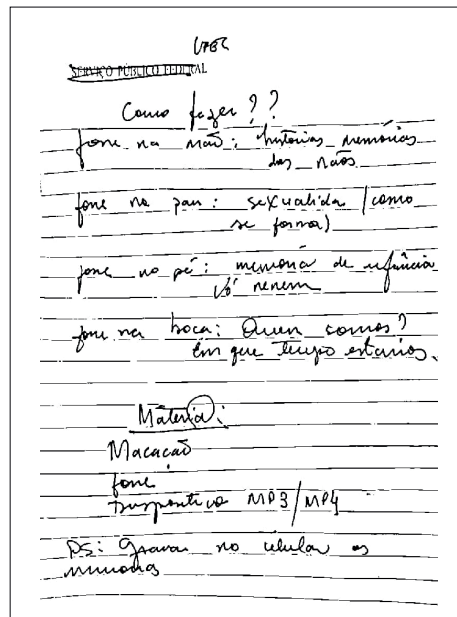 SERVIÇO PÚBLICO FEDERAL
Como fazer??
fone na mão: histórias memórias
das mãos
fone no pau: sexualida (como
se forma)
fone no pé: memoria de infância
Vó nenem
fone na boca: Quem somos?
Em que tempo estamos.
Material:
Macacão
fone
MP3/MP4
PS: Gravar no celular as
memorias